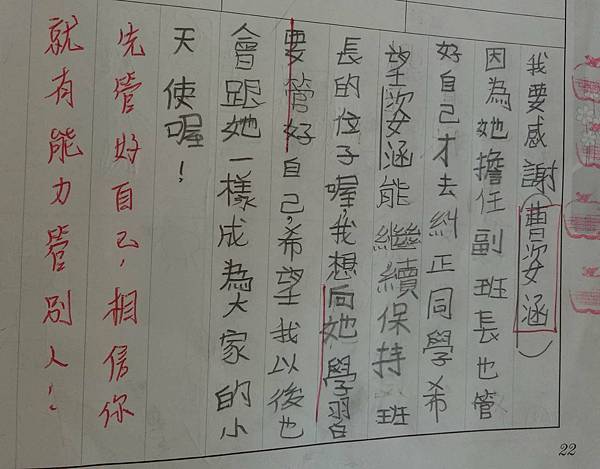 我要感謝(曹姿涵)
因為她擔任副班長也管
好自己才去糾正同學希
望姿涵能繼續保持班
長的位子喔,我想向她學習
要管好自己,希望我以後也
會跟她一樣成為大家的小
天使喔!
先管好自己,相信你
就有能力管別人!
22